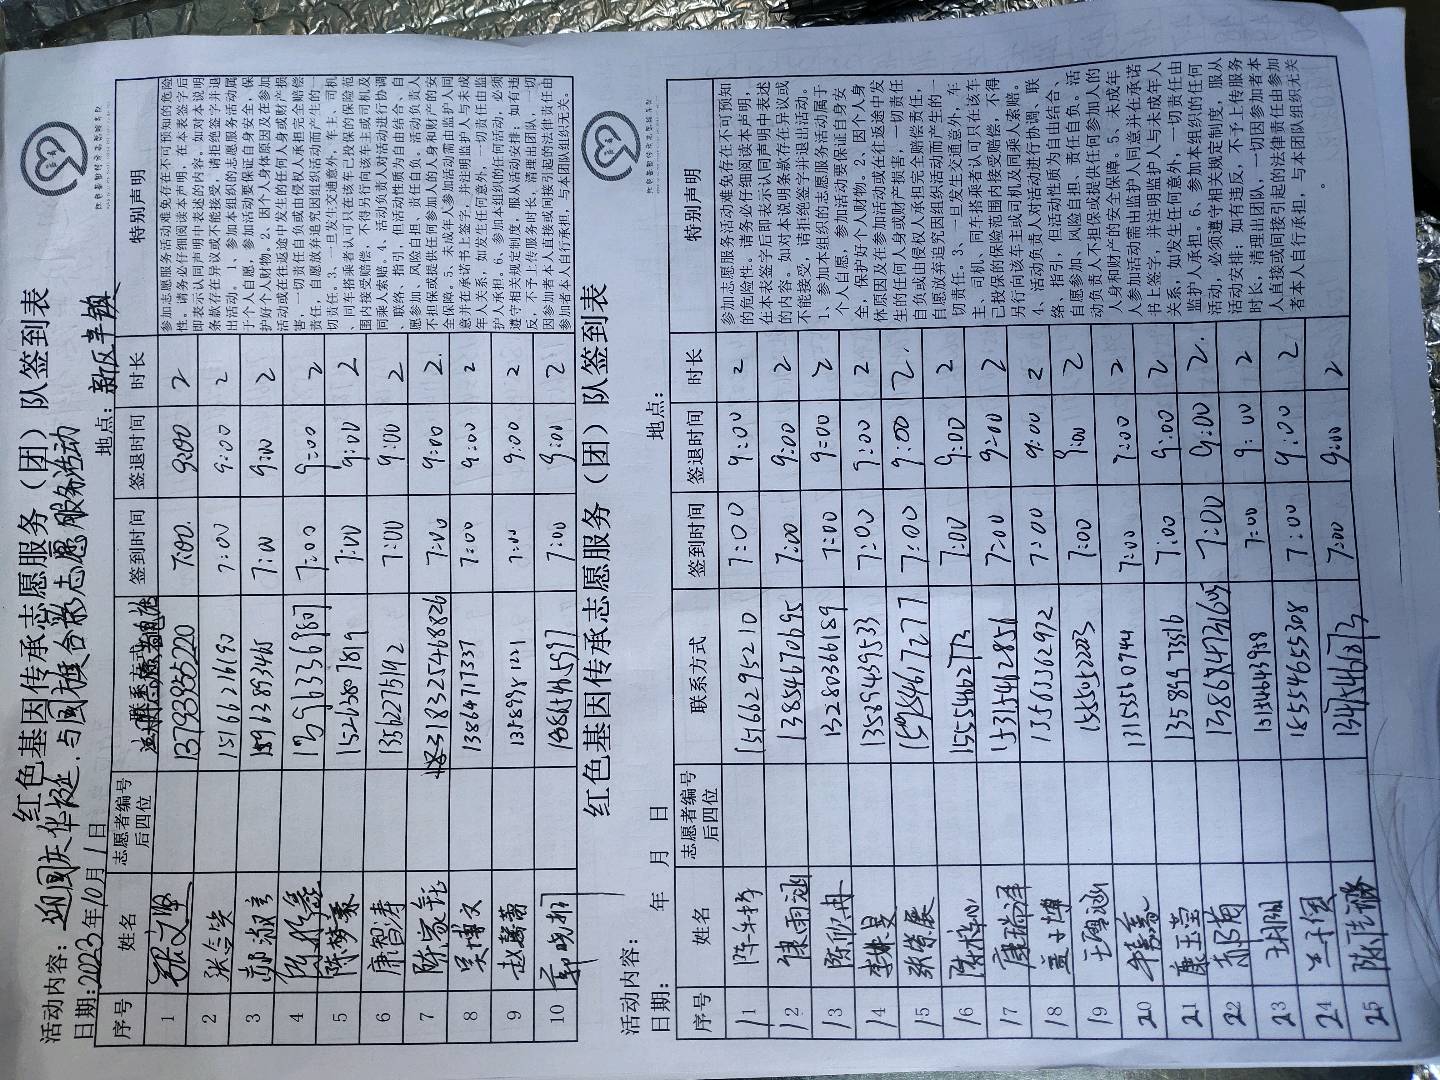 红色基因传承志愿服务（团）队签到表
活动内容：迎国庆华诞.与国旗合影志愿服务活动
日期:2023年10月1日 地点：
序号 姓名 志愿者编号后四位 联系方式 签到时间 签退时间 时长 特别声明
1 13793955220 7:00 9:00 2
2 张念笑 15166216190 7:00 9:00 2
3 7:00 9:00 2
4 7:00 9:00 2
5 陈梦豪 7:00 9:00 2
6 康智寿 13562275192 7:00 9:00 2
7 陈家钰 18325468826 7:00 9:00 2
8 吴博文 13864717337 7:00 9:00 2
9 赵馨蕾 13589981221 7:00 9:00 2
10 郭晓娟 7:00 9:00 2
参加志愿服务活动难免存在不可预知的危险性。请务必仔细阅读本声明，在本表签字后即表示认同声明中表述的内容。如对本说明条款存在异议或不能接受，请拒绝签字并退出活动。 1、参加本组织的志愿服务活动属于个人自愿，参加活动要保证自身安全，保护好个人财物。2、因个人身体原因及在参加活动或在往返途中发生的任何人身或财产损害，一切责任自负或由侵权人承担完全赔偿责任，自愿放弃追究因组织活动而产生的一切责任。3、一旦发生交通意外，车主、司机、同车搭乘者认可只在该车已投保的保险范围内接受赔偿，不得另行向该车主或司机及同乘人索赔。4、活动负责人对活动进行协调、联络、指引，但活动性质为自由结合、自愿参加、风险自担、责任自负。活动负责人不担保或提供任何参加人的人身和财产的安全保障。5、未成年人参加活动需由监护人同意并在承诺书上签字，并注明监护人与未成年人关系，如发生任何意外，一切责任由监护人承担。6、参加本组织的任何活动，必须遵守相关规定制度，服从活动安排，如有违反，不予上传服务时长，清理出团队，一切因参加者本人直接或间接引起的法律责任由参加者本人自行承担，与本团队组织无关。
红色基因传承志愿服务（团）队签到表
活动内容：
日期： 年 月 日 地点：
序号 姓名 志愿者编号后四位 联系方式 签到时间 签退时间 时长 特别声明
11 15662995210 7:00 9:00 2
12 13854670695 7:00 9:00 2
13 13280366189 7:00 9:00 2
14 13589459533 7:00 9:00 2
15 7:00 9:00 2
16 15554662773 7:00 9:00 2
17 康瑞泽 15315462856 7:00 9:00 2
18 孟子博 13563362972 7:00 9:00 2
19 王雪涵 15550522223 7:00 9:00 2
20 13153550744 7:00 9:00 2
21 康玉莹 13589973516 7:00 9:00 2
22 7:00 9:00 2
23 王明阳 7:00 9:00 2
24 185534655308 7:00 9:00 2
25 7:00 9:00 2
参加志愿服务活动难免存在不可预知的危险性。请务必仔细阅读本声明，在本表签字后即表示认同声明中表述的内容。如对本说明条款存在异议或不能接受，请拒绝签字并退出活动。
1、参加本组织的志愿服务活动属于个人自愿，参加活动要保证自身安全，保护好个人财物。2、因个人身体原因及在参加活动或在往返途中发生的任何人身或财产损害，一切责任自负或由侵权人承担完全赔偿责任，自愿放弃追究因组织活动而产生的一切责任。3、一旦发生交通意外，车主、司机、同车搭乘者认可只在该车已投保的保险范围内接受赔偿，不得另行向该车主或司机及同乘人索赔。
4、活动负责人对活动进行协调、联络、指引，但活动性质为自由结合、自愿参加、风险自担、责任自负。活动负责人不担保或提供任何参加人的人身和财产的安全保障。5、未成年人参加活动需由监护人同意并在承诺书上签字，并注明监护人与未成年人关系，如发生任何意外，一切责任由监护人承担。6、参加本组织的任何活动，必须遵守相关规定制度，服从活动安排；如有违反，不予上传服务时长，清理出团队，一切因参加者本人直接或间接引起的法律责任由参加者本人自行承担，与本团队组织无关。